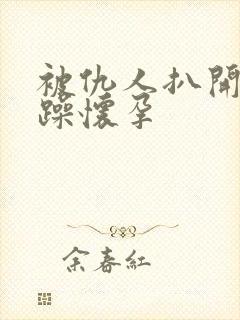 被仇人扒開
躁懷孕
余春紅